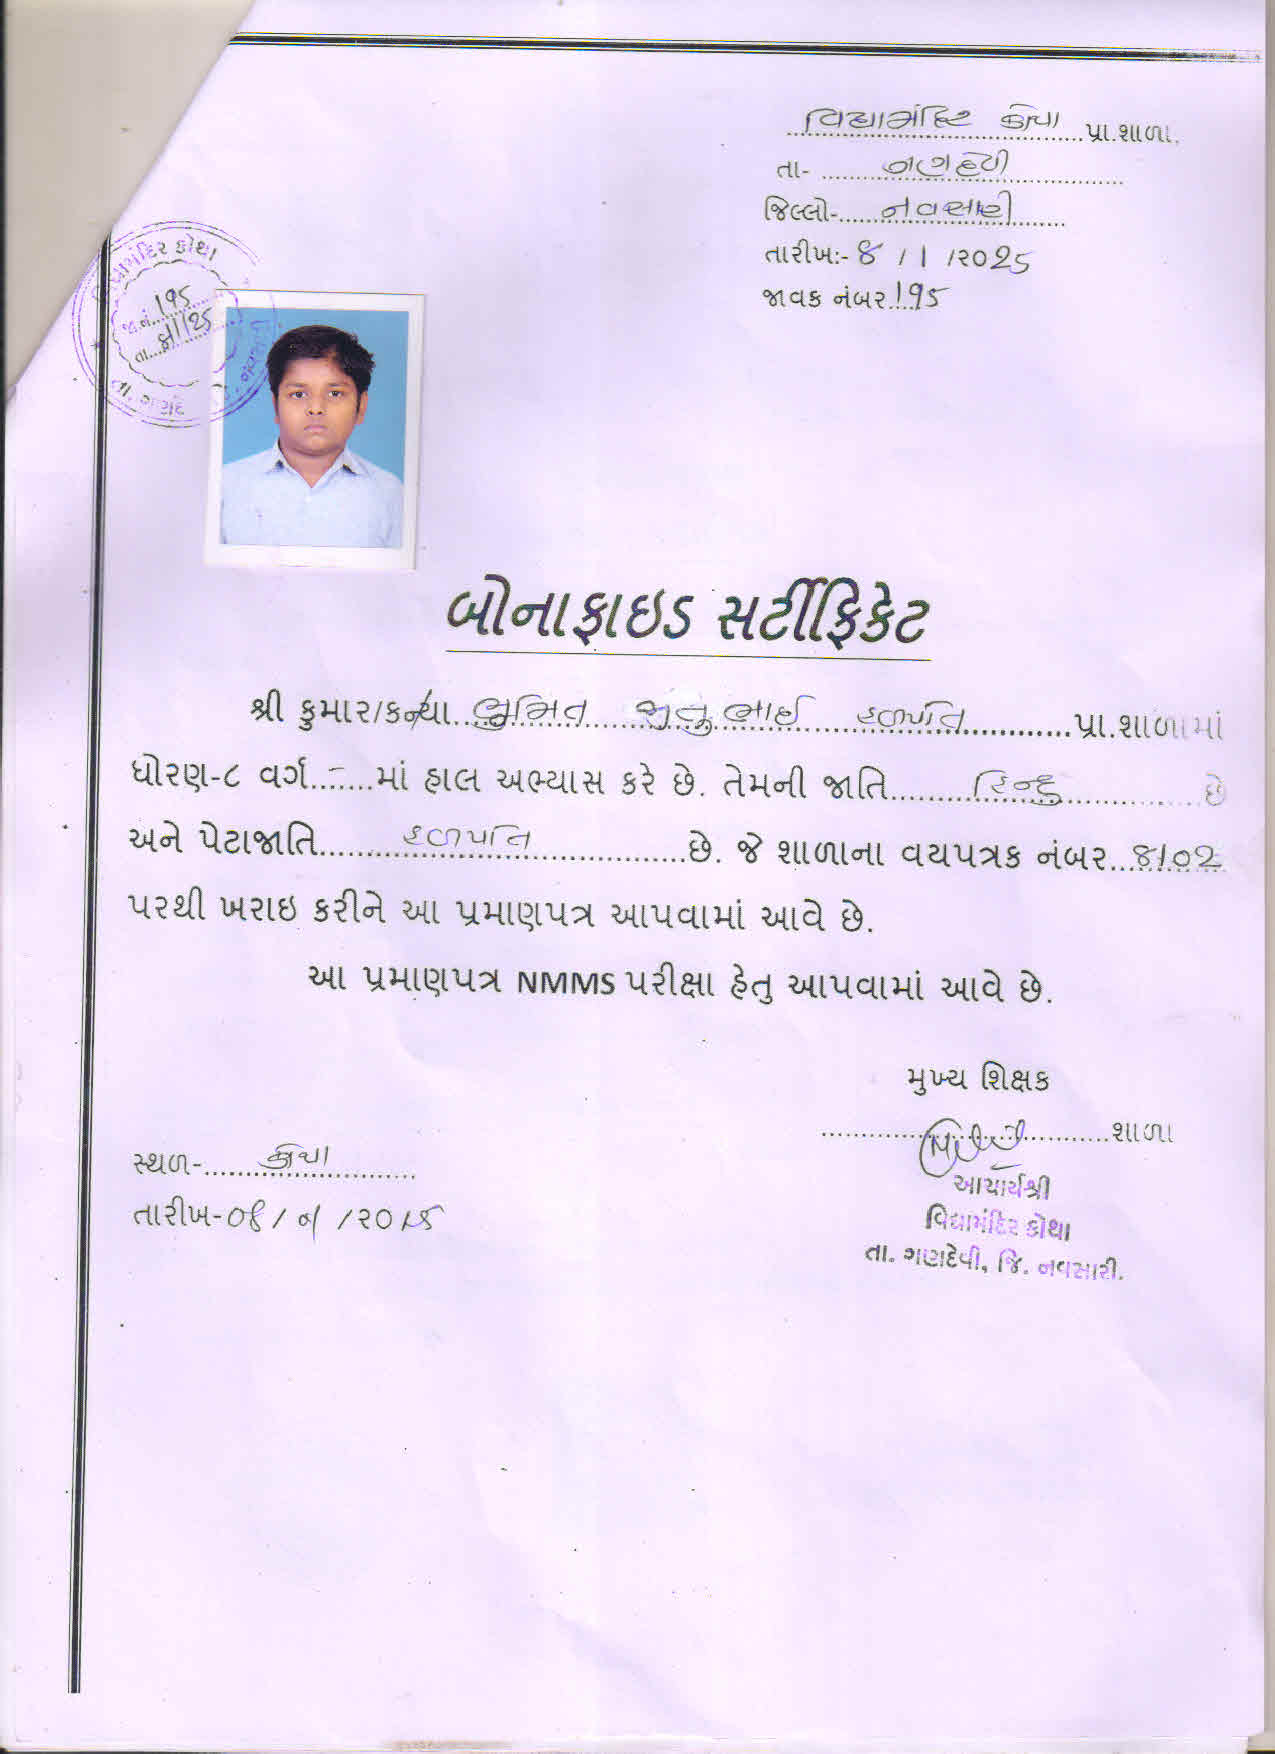 વિદ્યામંદિર કોથા પ્રા.શાળા.
તા- ગણદેવી
જિલ્લો- નવસારી
તારીખ:- ૪ / ૧ /૨૦25
જાવક નંબર 195
વિદ્યામંદિર કોથા
જા.નં. 195
તા. ૪/1/25
તા. ગણદે
બોનાફાઇડ સર્ટીફિકેટ
શ્રી કુમાર/કન્યા ભુમિત ભાઈ હળપતિ પ્રા.શાળામાં
ધોરણ-૮ વર્ગ. - માં હાલ અભ્યાસ કરે છે. તેમની જાતિ હિન્દુ છે
અને પેટાજાતિ હળપતિ છે. જે શાળાના વયપત્રક નંબર ૪૧૦૨
પરથી ખરાઇ કરીને આ પ્રમાણપત્ર આપવામાં આવે છે.
આ પ્રમાણપત્ર NMMS પરીક્ષા હેતુ આપવામાં આવે છે.
મુખ્ય શિક્ષક
શાળા
સ્થળ- કોથા
આચાર્યશ્રી
તારીખ-૦૪ / ૦૧ /૨૦
વિદ્યામંદિર કોથા
તા. ગણદેવી, જિ. નવસારી.